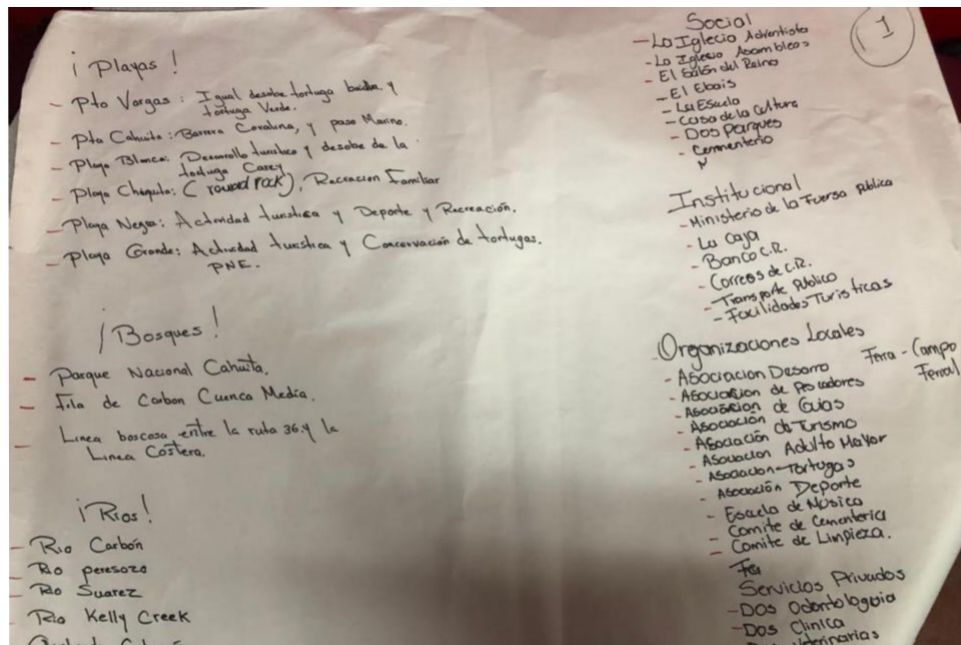 ¡ Playas !
- Pto Vargas : Igual desobe tortuga baula y
tortuga Verde.
- Pta Cahuita : Barrera Coralina, y paso Marino.
- Playa Blanca: Desarrollo turistico y desobe de la
tortuga Carey
- Playa Chiquita: ( round rock ), Recreacion Familiar
- Playa Negra: Actividad turistica y Deporte y Recreación.
- Playa Grande: Actividad turistica y Concervación de tortugas.
PNE.
¡ Bosques !
- Parque Nacional Cahuita.
- Fila de Carbon Cuenca Media.
- Linea boscosa entre la ruta 36. y la
Linea Costera.
¡ Rios !
- Rio Carbón
- Rio peresozo
- Rio Suarez
- Rio Kelly Creek
1
Social
- La Iglecia Adventista
- La Iglecia Asambleas
- El Salón del Reino
- El Ebais
- La Escuela
- Casa de la Cultura
- Dos Parques
- Cementerio
Institucional
- Ministerio de la Fuersa Pública
- La Caja
- Banco C.R.
- Correos de C.R.
- Transporte Público
- Facilidades Turisticas
Organizaciones Locales
- Asociacion Desarro
Feria - Campo
Ferial
- Asociacion de Pescadores
- Asociación de Guias
- Asociación de Turismo
- Asociacion Adulto Mayor
- Asociacion Tortugas
- Asociación Deporte
- Escuela de Música
- Comite de Cementerio
- Comite de Limpieza.
Servicios Privados
- Dos Odontologia
- Dos Clinica
Veterinarias